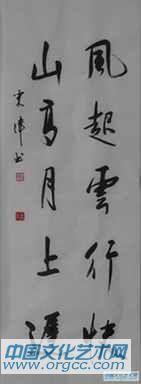 風起雲行快
山高月上
中国文化艺术网
www.orgcc.com